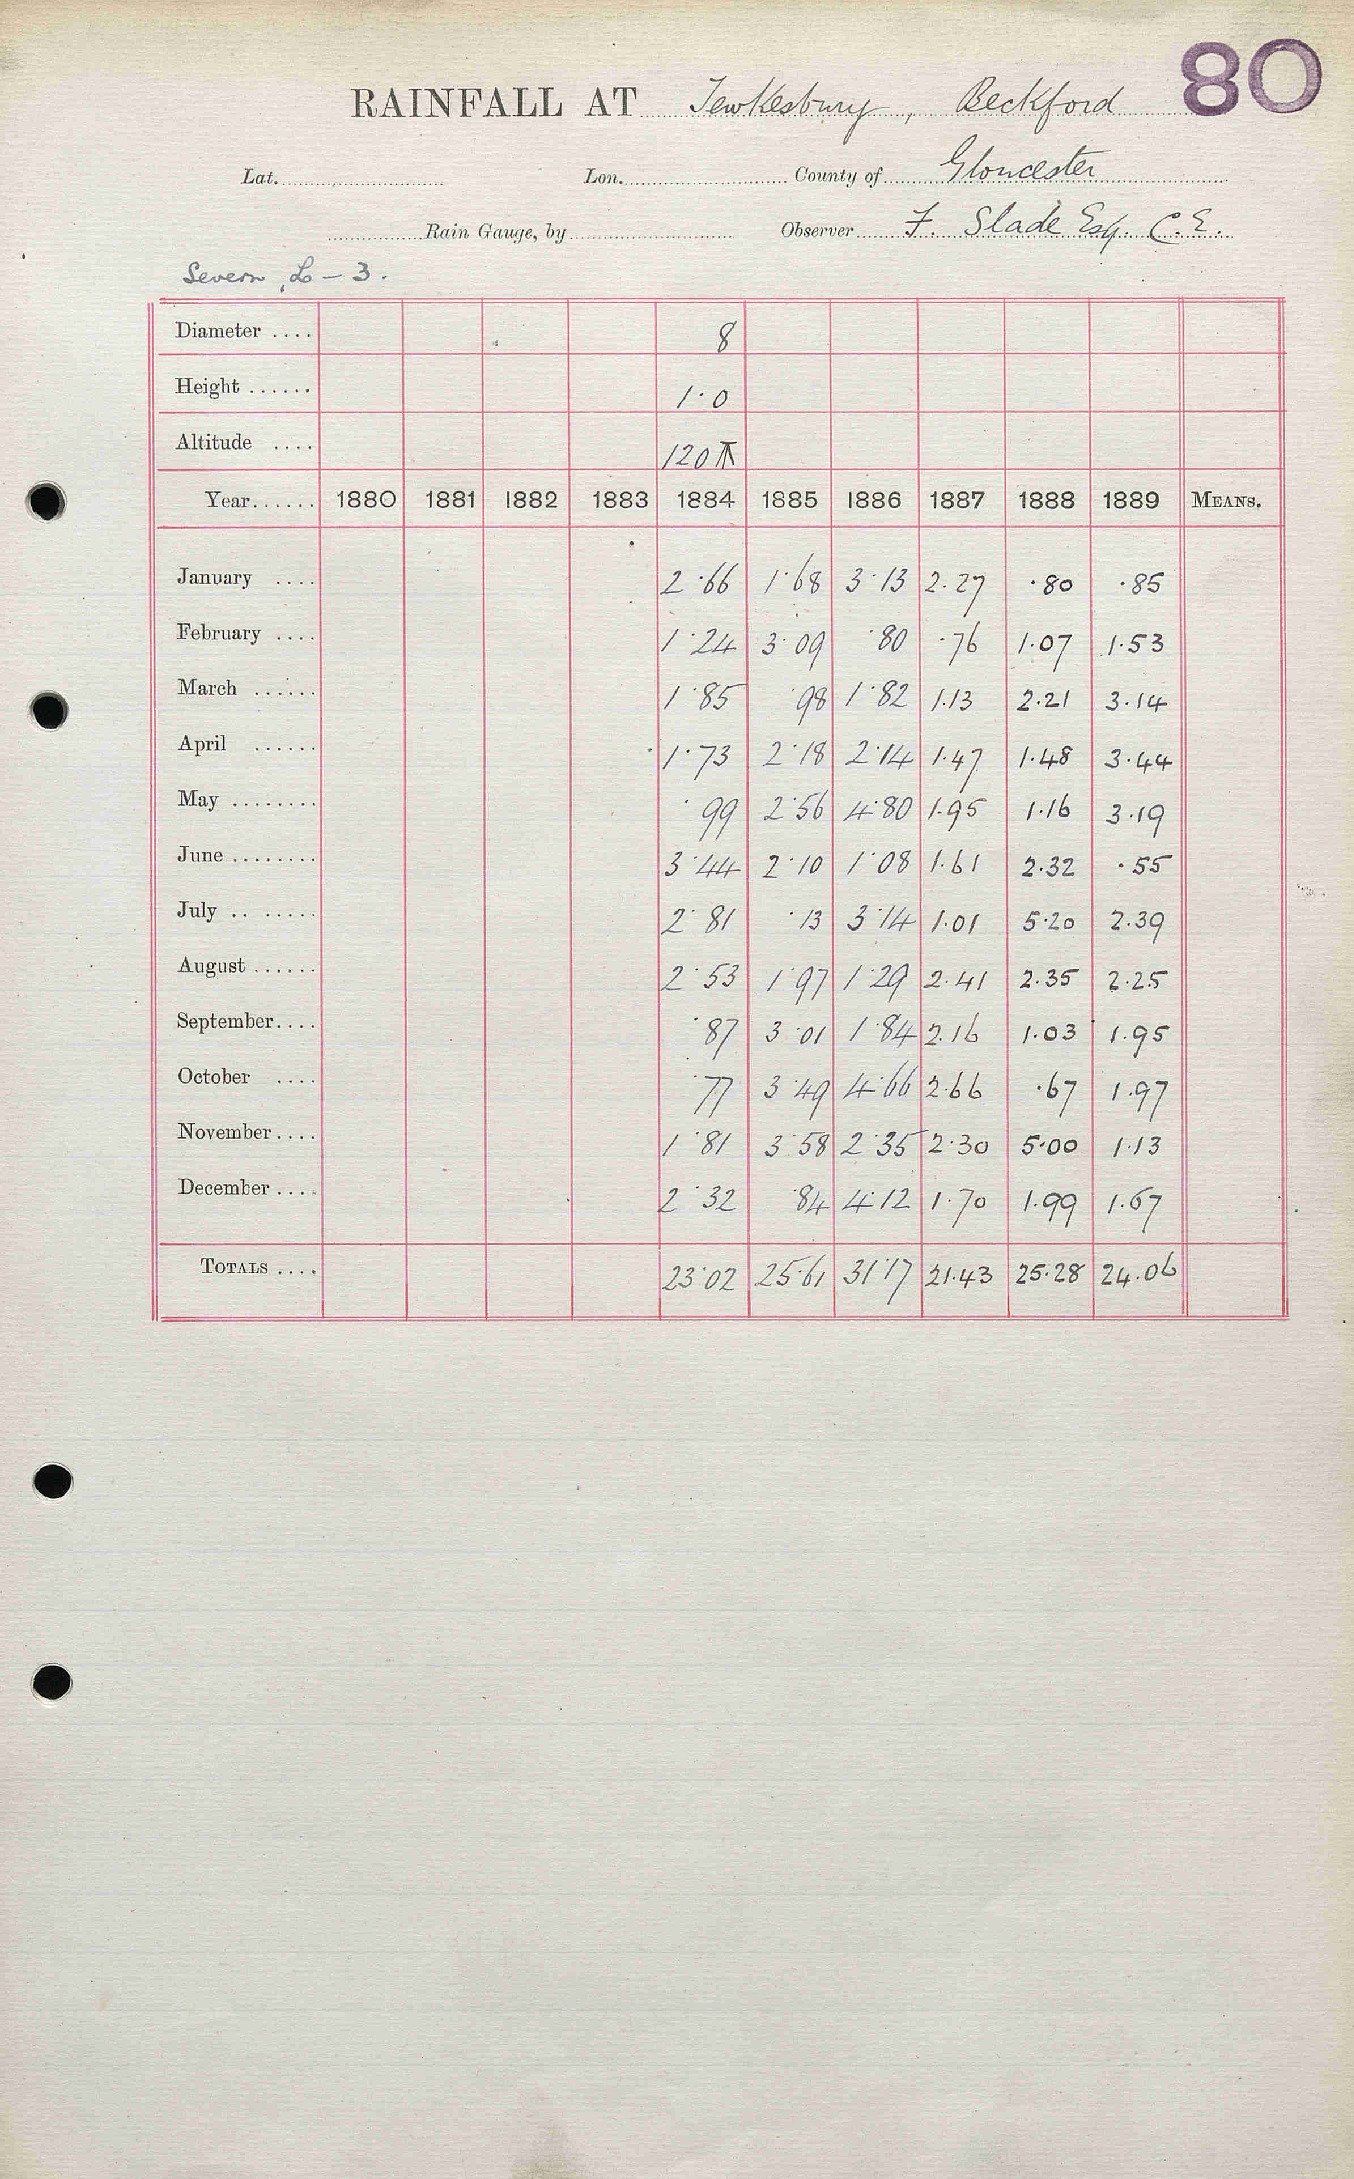 80
RAINFALL AT Tewkesbury, Beckford
Lat. Lon. County of Gloucester
Rain Gauge, by Observer F. Slade Esq. C.E.
Severn, L - 3.
Diameter .... 8
Height ...... 1·0
Altitude .... 120
Year...... 1880 1881 1882 1883 1884 1885 1886 1887 1888 1889 MEANS.
January .... 2·66 1·68 3·13 2·27 ·80 ·85
February .... 1·24 3·09 ·80 ·76 1·07 1·53
March ...... 1·85 ·98 1·82 1·13 2·21 3·14
April ...... 1·73 2·18 2·14 1·47 1·48 3·44
May ........ ·99 2·56 4·80 1·95 1·16 3·19
June ........ 3·44 2·10 1·08 1·61 2·32 ·55
July .. ...... 2·81 ·13 3·14 1·01 5·20 2·39
August ...... 2·53 1·97 1·29 2·41 2·35 2·25
September.... ·87 3·01 1·84 2·16 1·03 1·95
October .... ·77 3·49 4·66 2·66 ·67 1·97
November.... 1·81 3·58 2·35 2·30 5·00 1·13
December .... 2·32 ·84 4·12 1·70 1·99 1·67
TOTALS .... 23·02 25·61 31·17 21·43 25·28 24·06